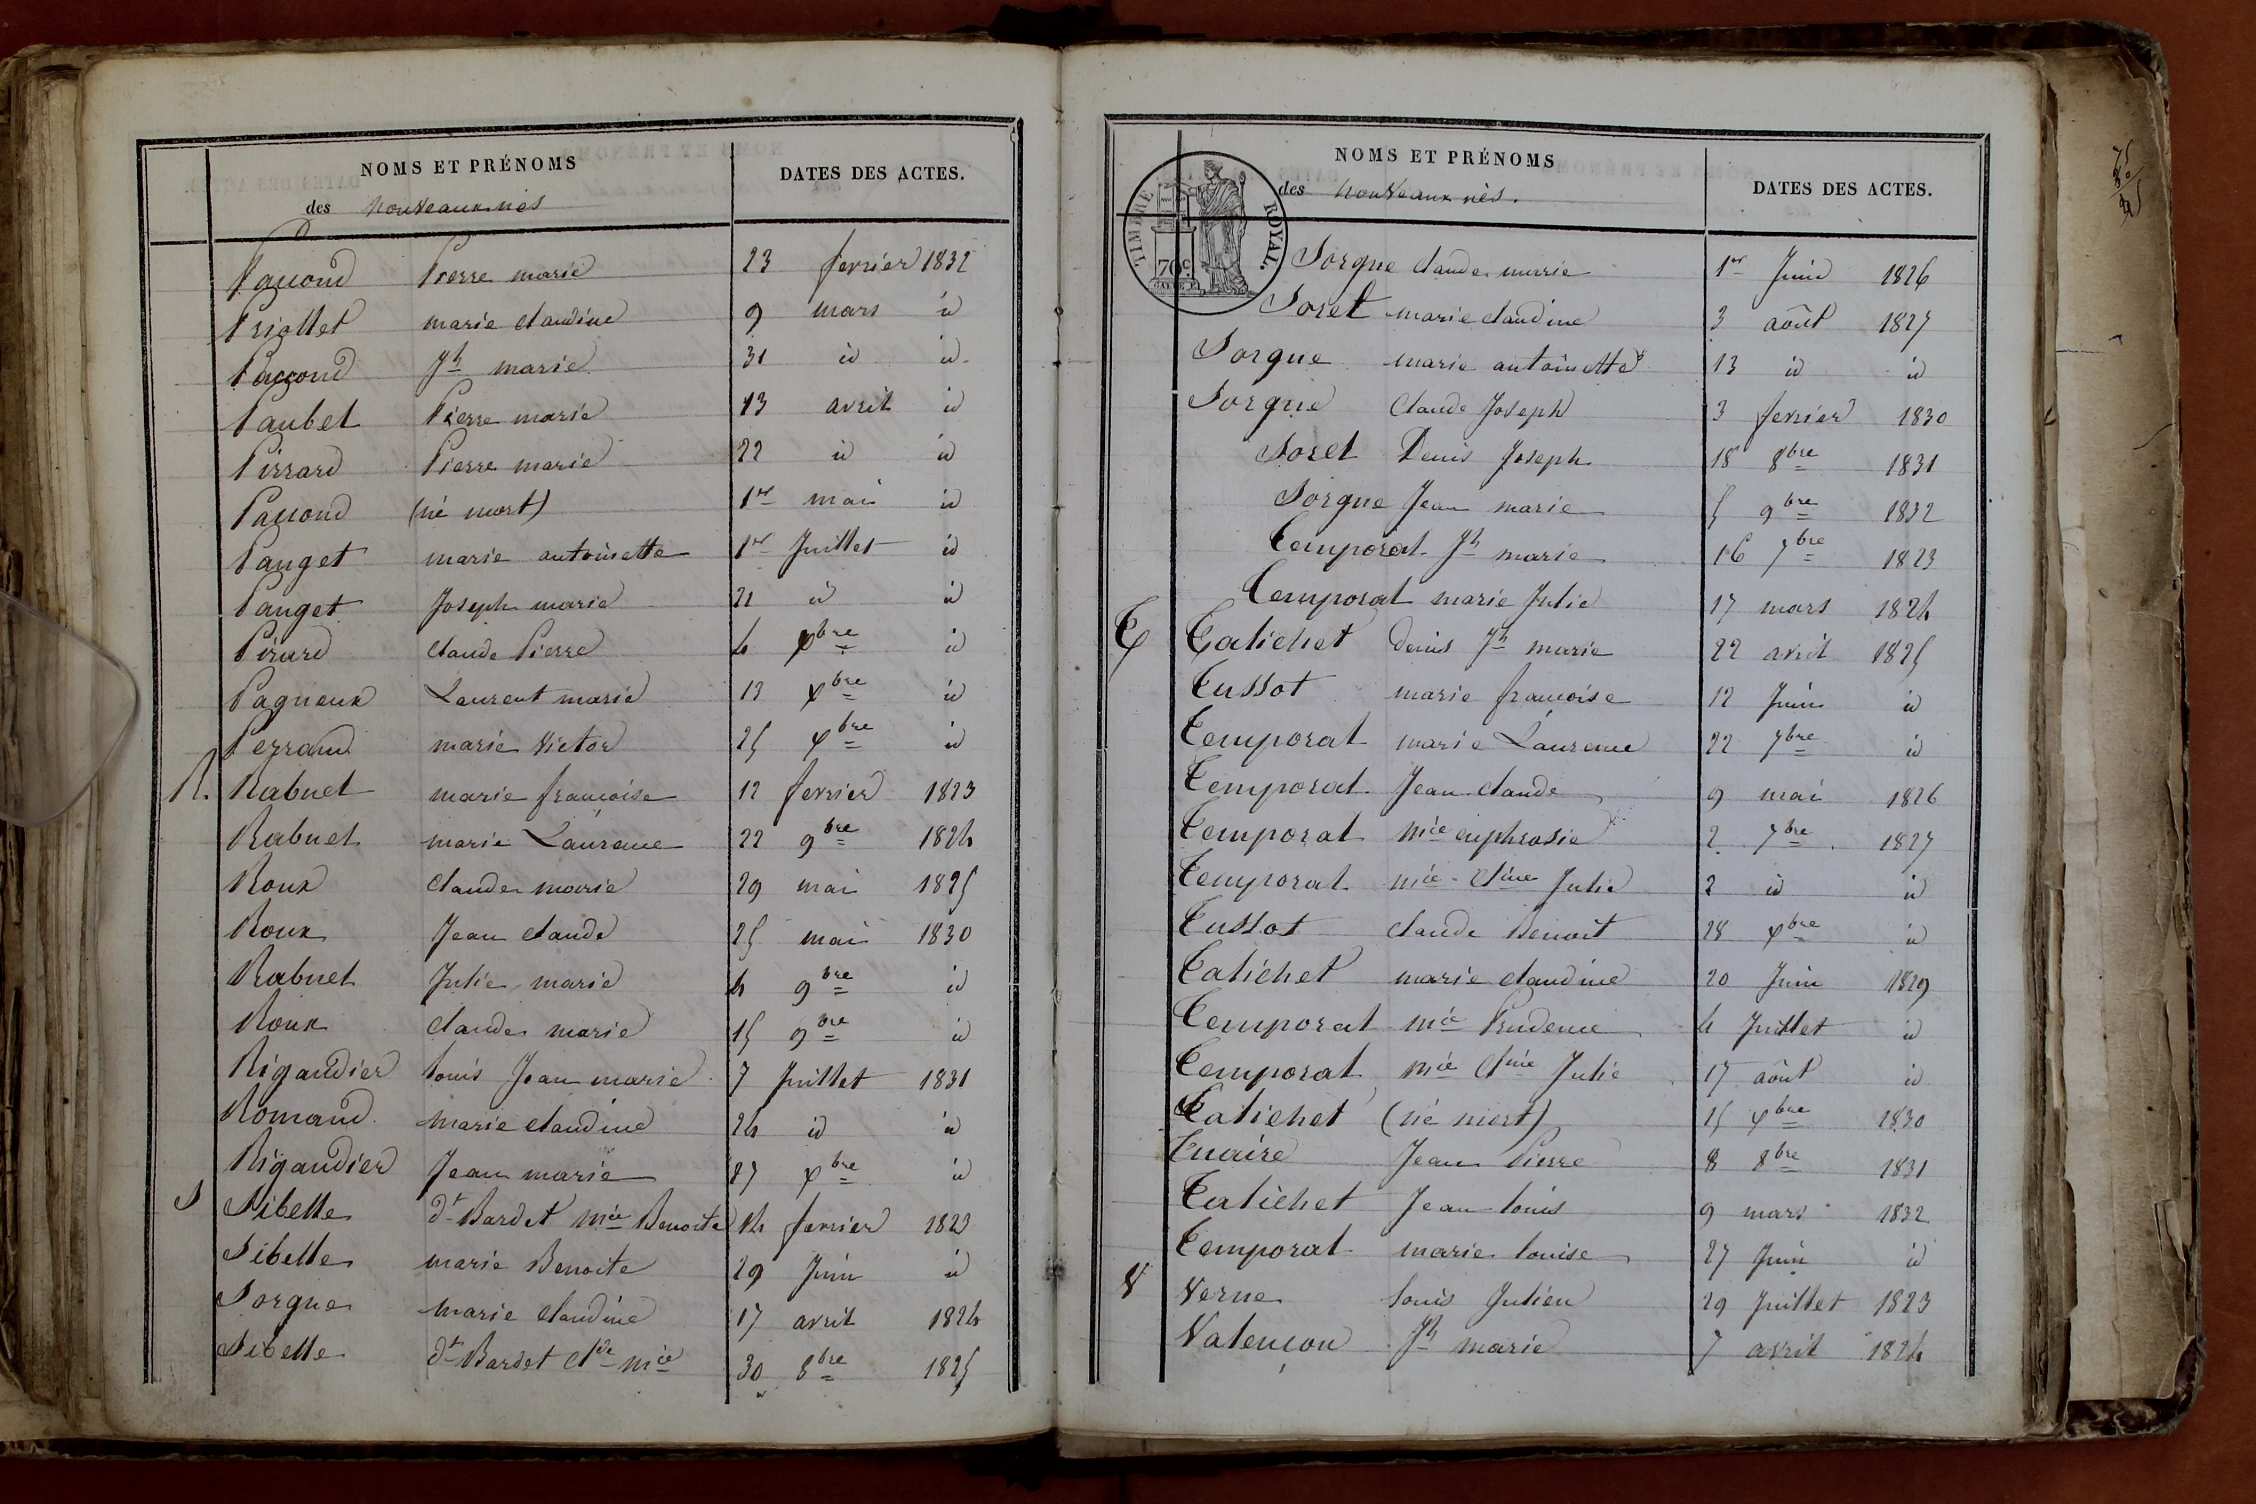 NOMS ET PRÉNOMS
DATES DES ACTES.
des nouveaux nés
Paccoud Pierre marie 23 fevrier 1832
Priollet marie claudine 9 mars id
Paccoud Jh marie 31 id id
Paubel Pierre marie 13 avril id
Pirrard Pierre marie 22 id id
Paccoud (né mort) 1er mai id
Panget marie antoinette 1er Juillet id
Panget Joseph marie 21 id id
Pirard claude Pierre 4 Xbre id
Pagneux Laurent marie 13 Xbre id
Perraud marie victor 25 Xbre id
R. Rabuel marie francoise 12 fevrier 1823
Rabuel marie Laurence 22 9bre 1824
Roux claude marie 29 mai 1825
Roux Jean claude 25 mai 1830
Rabuel Julie marie 4 9bre id
Roux claude marie 15 9bre id
Rigaudier Louis Jean marie 7 Juillet 1831
Romand marie claudine 24 id id
Rigaudier Jean marie 27 Xbre id
S Sibelle dt Bardet mie Benoite 14 fevrier 1823
Sibelle marie Benoite 29 Juin id
Sorgue marie claudine 17 avril 1824
Sibelle dt Bardet Cde mie 30 8bre 1825
NOMS ET PRÉNOMS
DATES DES ACTES.
des nouveaux nés.
TIMBRE ROYAL.
70c.
Sorgue claude marie 1er Juin 1826
Soret marie claudine 3 août 1827
Sorgue marie antoinette 13 id id
Sorgue Claude Joseph 3 fevrier 1830
Soret Denis Joseph 18 8bre 1831
Sorgue Jean marie 5 9bre 1832
Temporal Jh marie 16 7bre 1823
Temporal marie Julie 17 mars 1824
T Catichet denis Jh marie 22 avril 1825
Tussot marie francoise 12 Juin id
Temporal marie Laurence 22 7bre id
Temporal Jean claude 9 mai 1826
Temporal mie euphrosie 2 7bre 1827
Temporal mie Cdine Julie 2 id id
Tussot claude Benoit 28 Xbre id
Catichet marie claudine 20 Juin 1829
Temporal mie Prudence 4 Juillet id
Temporal mie Cdine Julie 17 août id
Catichet (né mort) 15 Xbre 1830
Tuaire Jean Pierre 8 8bre 1831
Catichet Jean Louis 9 mars 1832
Temporal marie Louise 27 Juin id
V Verne Louis Julien 29 Juillet 1823
Valençon Jh marie 7 avril 1824